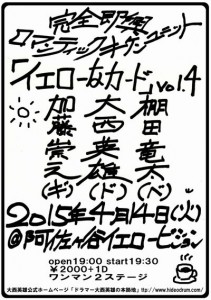 完全即興
ロマンティック
「イエローなカード」vol.4
棚田竜太(ベ)
大西英雄(ド)
加藤崇之(ギ)
2015年4月14日(火)
@阿佐ヶ谷イエロービジョン
open19:00 start19:30
¥2000+1D
ワンマン2ステージ
大西英雄公式ホームページ「ドラマー大西英雄の本拠地」ttp://www.hideodrum.com/